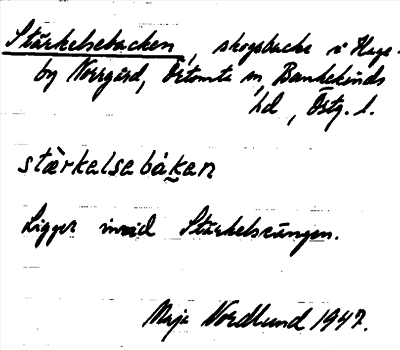 Stärkelsebacken, skogsbacke i Hage-
by Norrgård, Örtomta sn, Bankekinds
hd, Östg. l.
stærkelsebåkan
Ligger invid Stärkelseängen.
Maja Nordlund 1947.